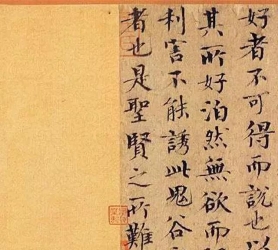 好者不可得而說也以
其所好泊然無欲而
利害不能誘此鬼谷
者也是聖賢之所難